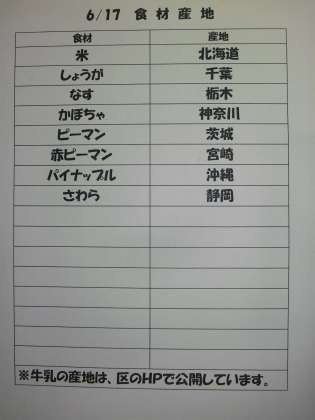 6/17 食材産地
食材 産地
米 北海道
しょうが 千葉
なす 栃木
かぼちゃ 神奈川
ピーマン 茨城
赤ピーマン 宮崎
パイナップル 沖縄
さわら 静岡
※牛乳の産地は、区のHPで公開しています。